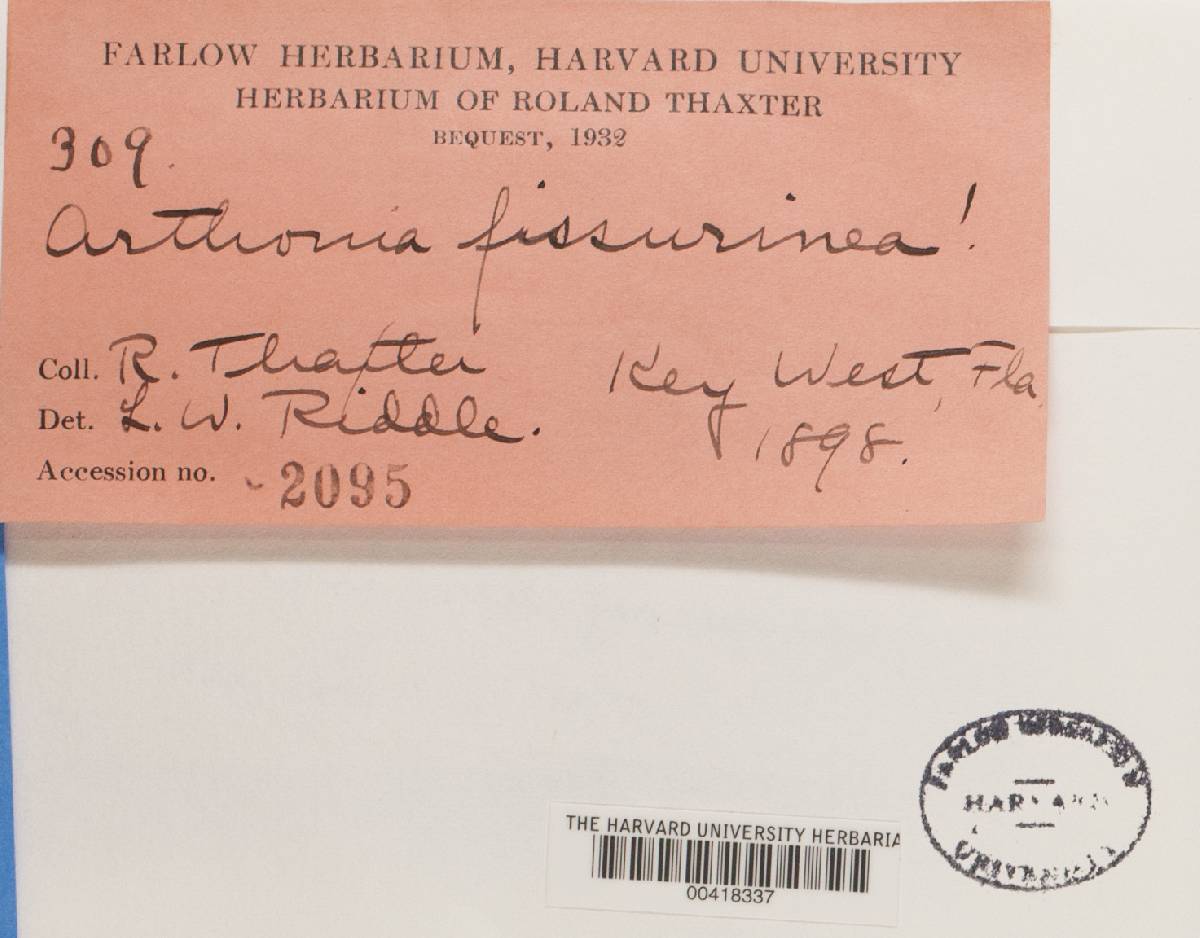 FARLOW HERBARIUM, HARVARD UNIVERSITY
HERBARIUM OF ROLAND THAXTER
BEQUEST, 1932
309.
Arthonia fissurinea!
Coll. R. Thaxter
Key West, Fla.
Det. L. W. Riddle.
1898.
Accession no. 2095
THE HARVARD UNIVERSITY HERBARIA
00418337
FARLOW HERBARIUM
HARVARD
UNIVERSITY